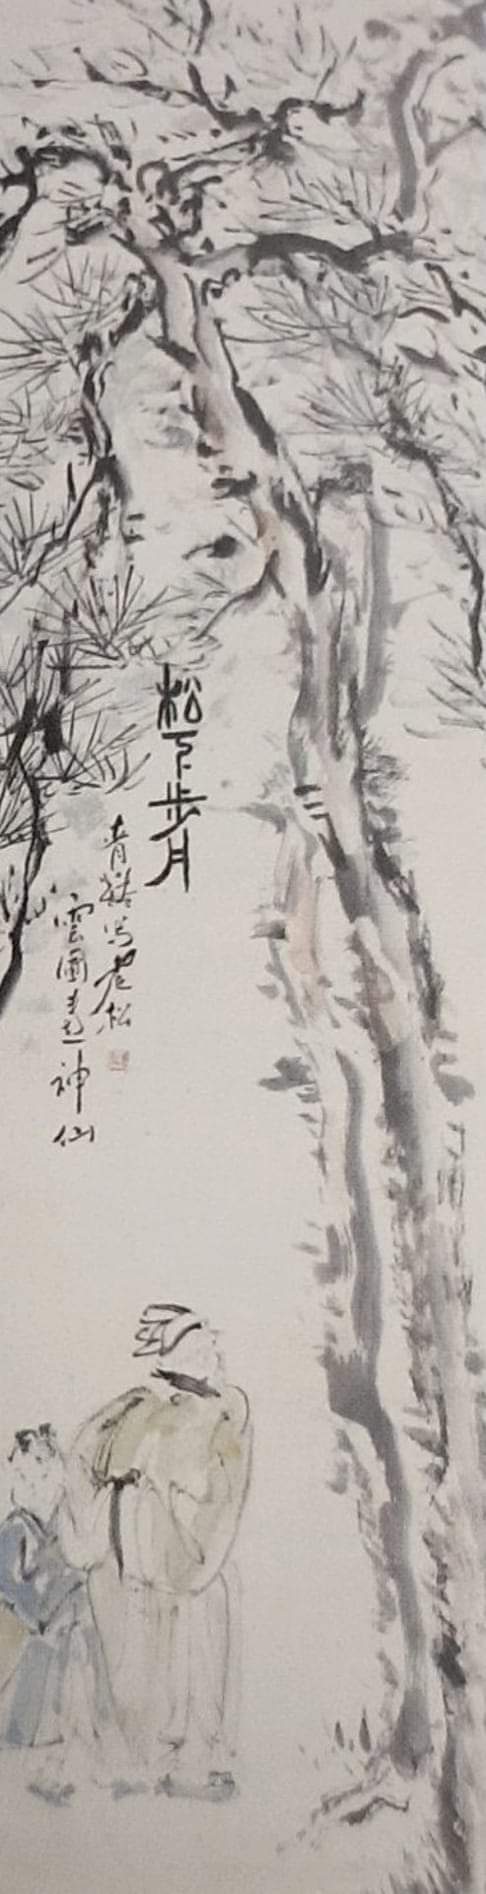 松下步月
青谿写老松
雲圃畫神仙